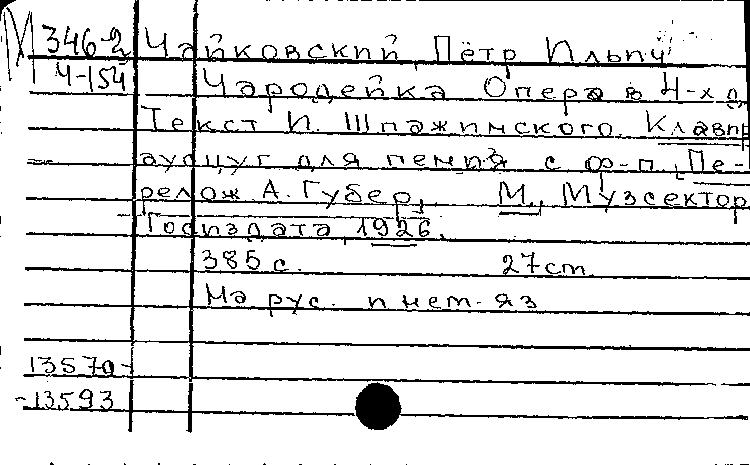 М 346-2 Чайковский, Пётр Ильич
Ч-154 Чародейка Опера в 4-х д.
Текст И. Шпажинского. Клавир
аусцуг для пения с ф-п. Пе-
релож А. Губер, М., Музсектор
Госиздата, 1926.
385 с. 27 cm.
На рус. и нем. яз
13570-
-13593